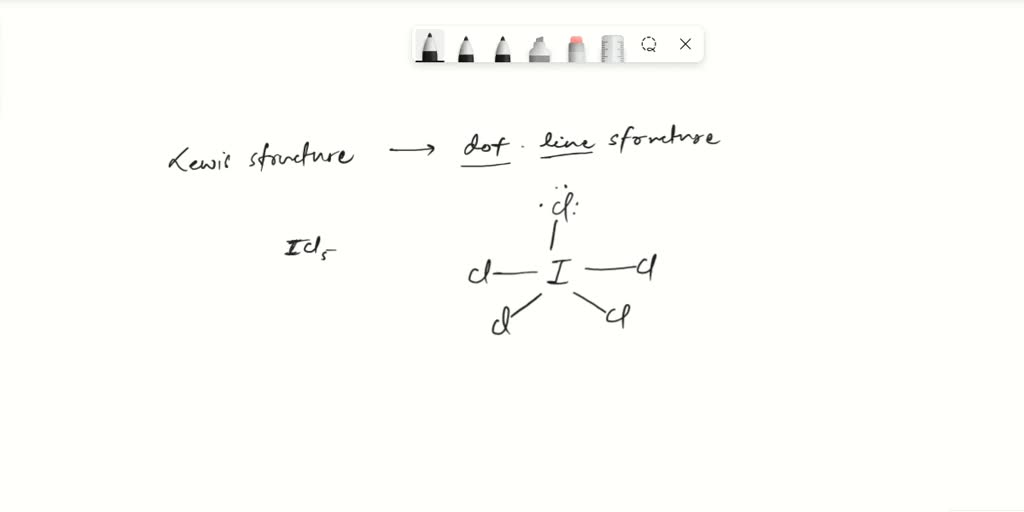 Lewis structure → dot. line structure
:Cl:
ICl5
Cl — I — Cl
Cl Cl